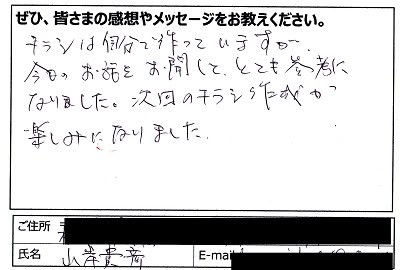 ぜひ、皆さまの感想やメッセージをお教えください。
チラシは自分で作っていますが、
今日のお話をお聞して、とても参考に
なりました。次回のチラシ作成が
楽しみになりました。
ご住所
氏名 山岸貴斉 E-mail